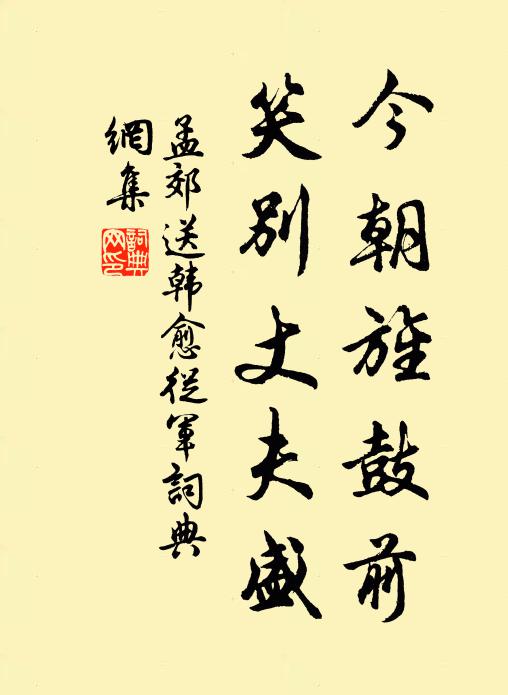 今朝旌鼓前
笑別丈夫盛
孟郊送韩愈從軍詞典
網集
詞典
网印